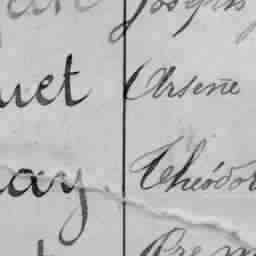 Joseph
uet Arsene
ay. Théodor